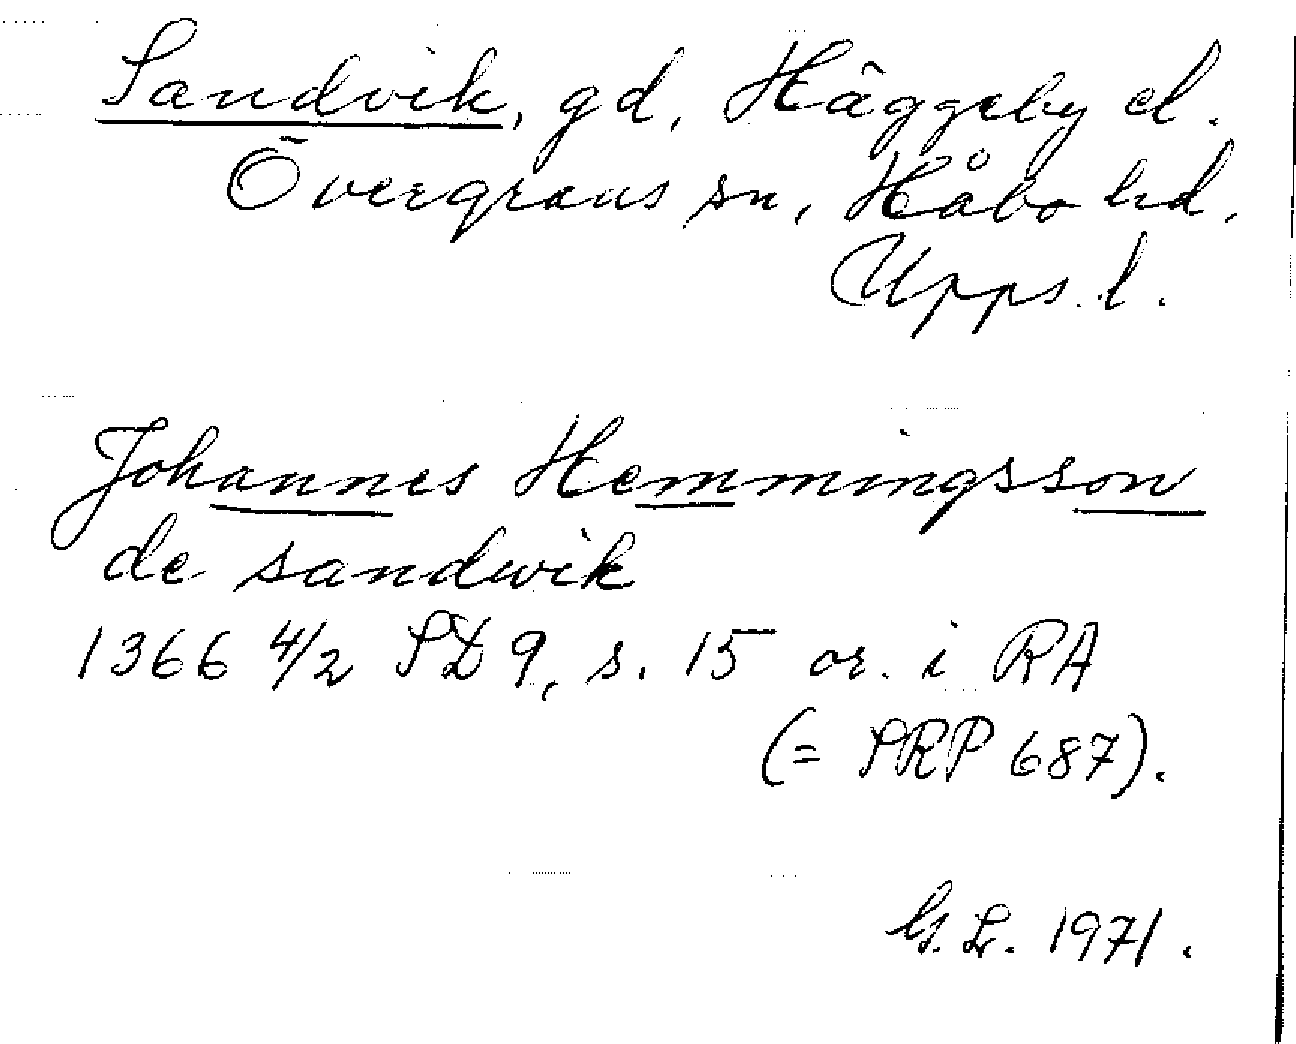 Sandvik, gd, Häggeby el.
Övergrans sn, Håbo hd,
Upps. l.
Johannes Hemmingsson
de sandwik
1366 4/2 SD 9, s. 15 or. i RA
(= SRP 687).
G. L. 1971.